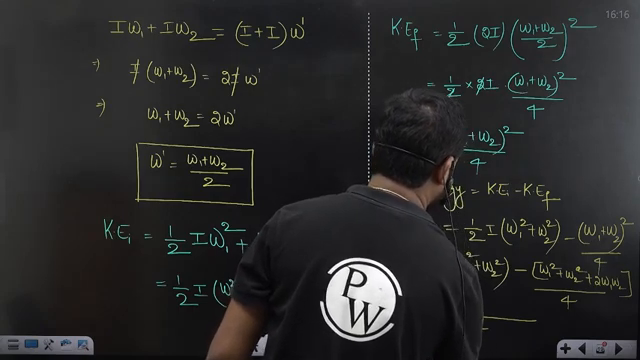 Iω₁ + Iω₂ = (I + I) ω'
⇒ I (ω₁+ω₂) = 2I ω'
⇒ ω₁ + ω₂ = 2ω'
ω' = (ω₁+ω₂)/2
K.Eᵢ = 1/2 Iω₁² +
= 1/2 I (ω
16:16
K.E_f = 1/2 (2I) ((ω₁+ω₂)/2)²
= 1/2 × 2I · (ω₁+ω₂)²/4
+ ω₂)²/4
gy = K.Eᵢ - K.E_f
= 1/2 I (ω₁²+ω₂²) - (ω₁+ω₂)²/4
+ω₂²) - [ω₁²+ω₂²+2ω₁ω₂]/4
P
W